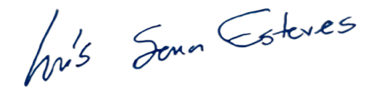 Luís Sena Esteves